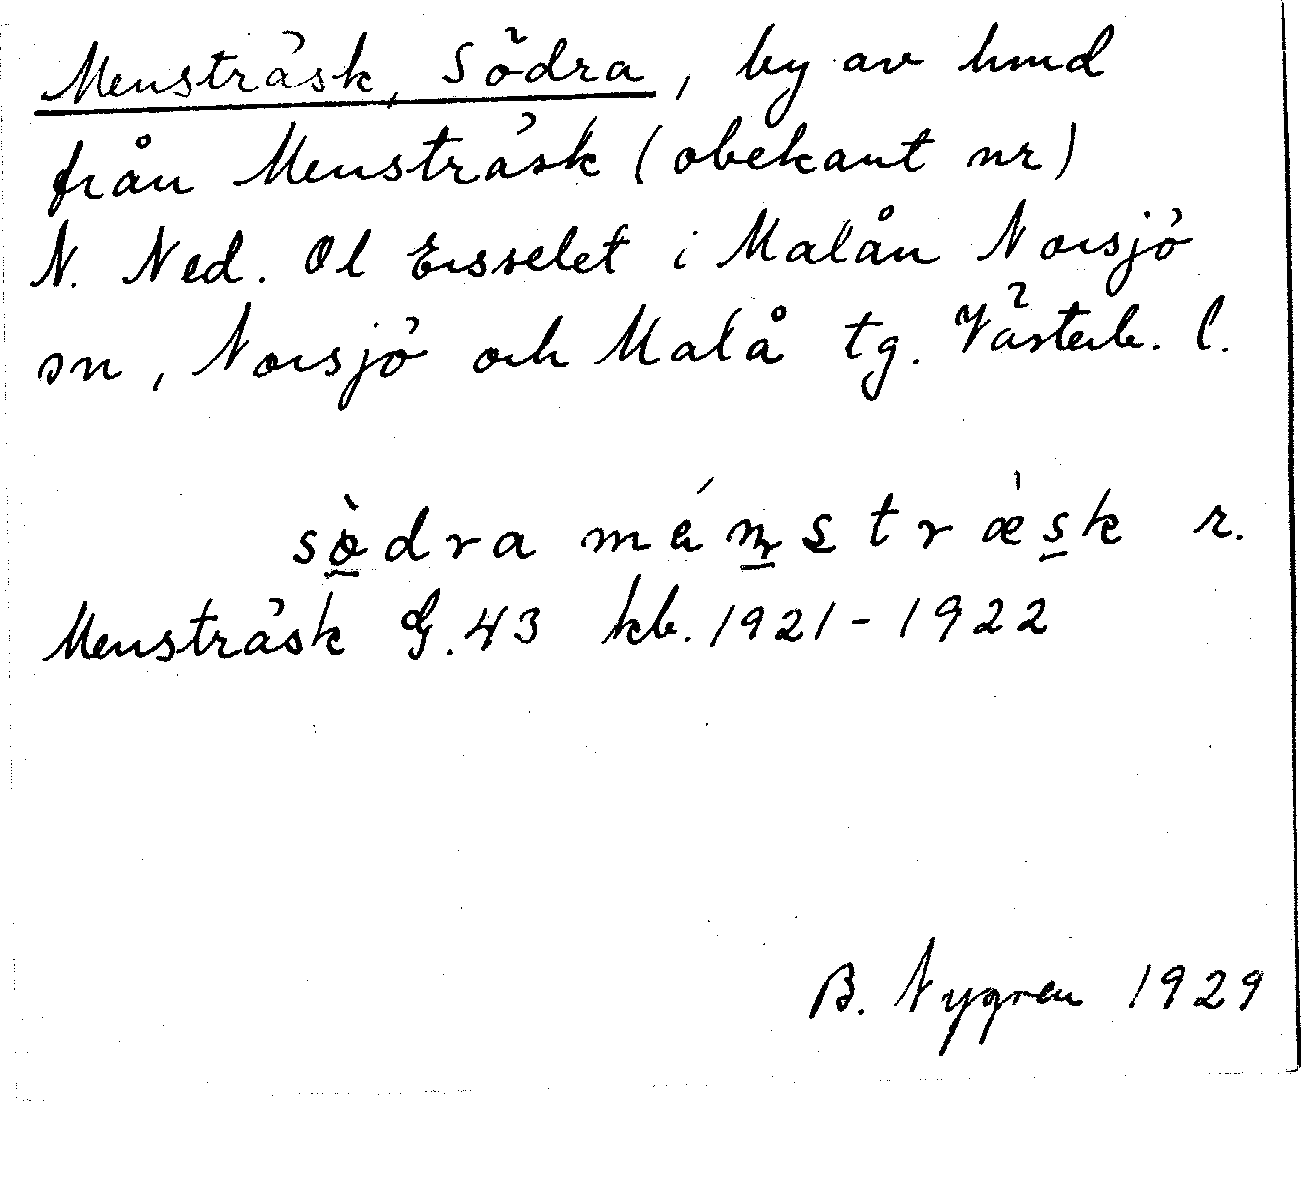 Mensträsk, Södra, by av hmd
från Mensträsk (obekant nr)
N. Ned. Ol Ersselet i Malån Norsjö
sn, Norsjö och Malå tg. Västerb. l.
sö̀dra ménsträ̀sk r.
Mensträsk G.43 kb. 1921-1922
B. Nygren 1929